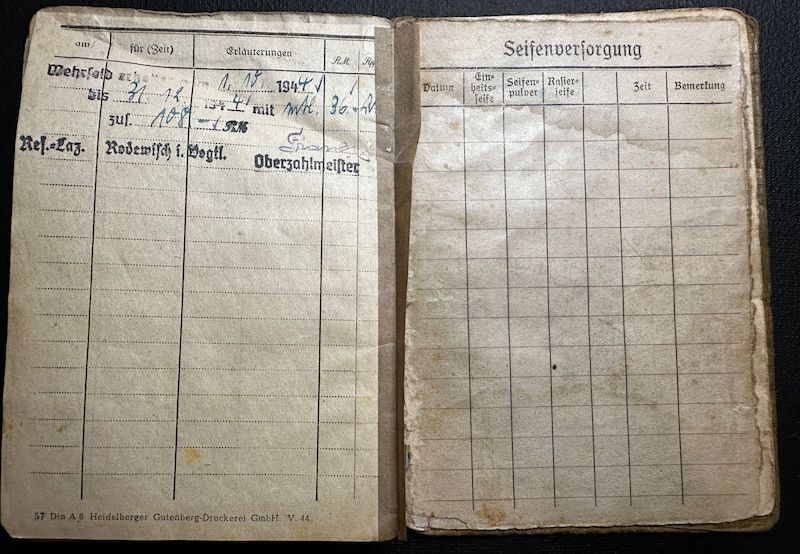 am für (Zeit) Erläuterungen RM
Wehrsold erhalten 1. 10. 1944
bis 31. 12. 1944 mit mtl. 36.-
zus. 108.- RM
Res.-Laz. Rodewisch i. Vogtl.
Oberzahlmeister
57 Din A 6 Heidelberger Gutenberg-Druckerei GmbH. V. 44
Seifenversorgung
Datum Ein-heits-seife Seifen-pulver Rasier-seife Zeit Bemerkung